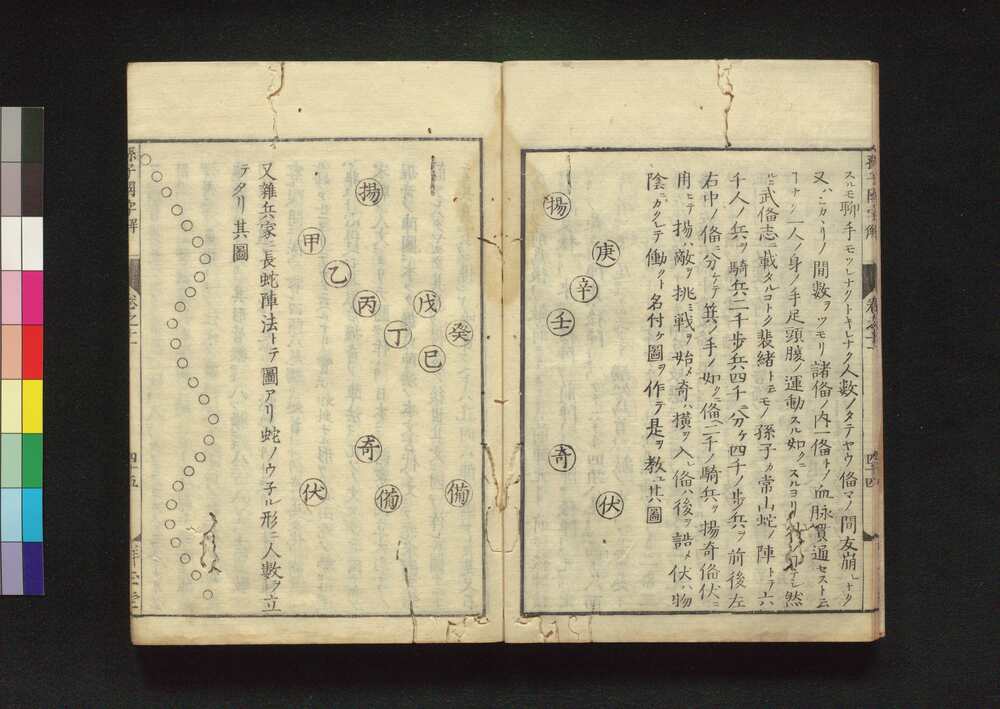 スルモ聊手モツレナクトキレナク人數ノタテヤウ俻マノ間友崩レナク
又ハニカヽリノ間數ヲツモリ諸俻ノ内一俻トノ血脉貫通セスト云
ナク一人ノ身ノ手足頭腹ノ運動スル如クニスルヨリ
ルニ武俻志ニ載タルコトク裴緒トモノ孫子カ常山蛇ノ陣トテ六
千人ノ兵ヲ騎兵二千步兵四千ニ分ケ四千ノ步兵ヲ前後左
右中ノ俻ニ分ケテ箕ノ手ノ如クニ俻二千ノ騎兵ヲ揚奇俻伏ニ
用ヒテ揚ハ敵ヲ挑ミ戰ヲ始メ奇ハ横ヲ入レ俻ハ後ヲ詰メ伏ハ物
陰ニカクレテ働クト名付ケ圖ヲ作テ是ヲ教ユ其圖
揚
庚
辛
壬
奇
伏
孫子國字解
四十四
癸
戊
巳
丁
丙
乙
甲
揚
奇
備
備
伏
又雜兵家ニ長蛇陣法トテ圖アリ蛇ノウ子ル形ニ人數ヲ立
テタリ其圖
孫子國字解
四十五